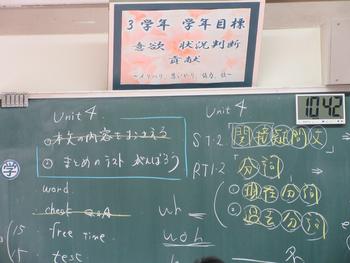 3学年 学年目標
意欲 状況判断
貢献
～メリハリ、思いやり、協力、仕～
10:42
学
Unit 4
○本文の内容をまとめよう
○まとめのテスト がんばろう
word
check Q&A
15 free time
15 test
wh
Unit 4
ST1-2 間接疑問文
RT1-2 「分詞
① 現在分詞
② 過去分詞